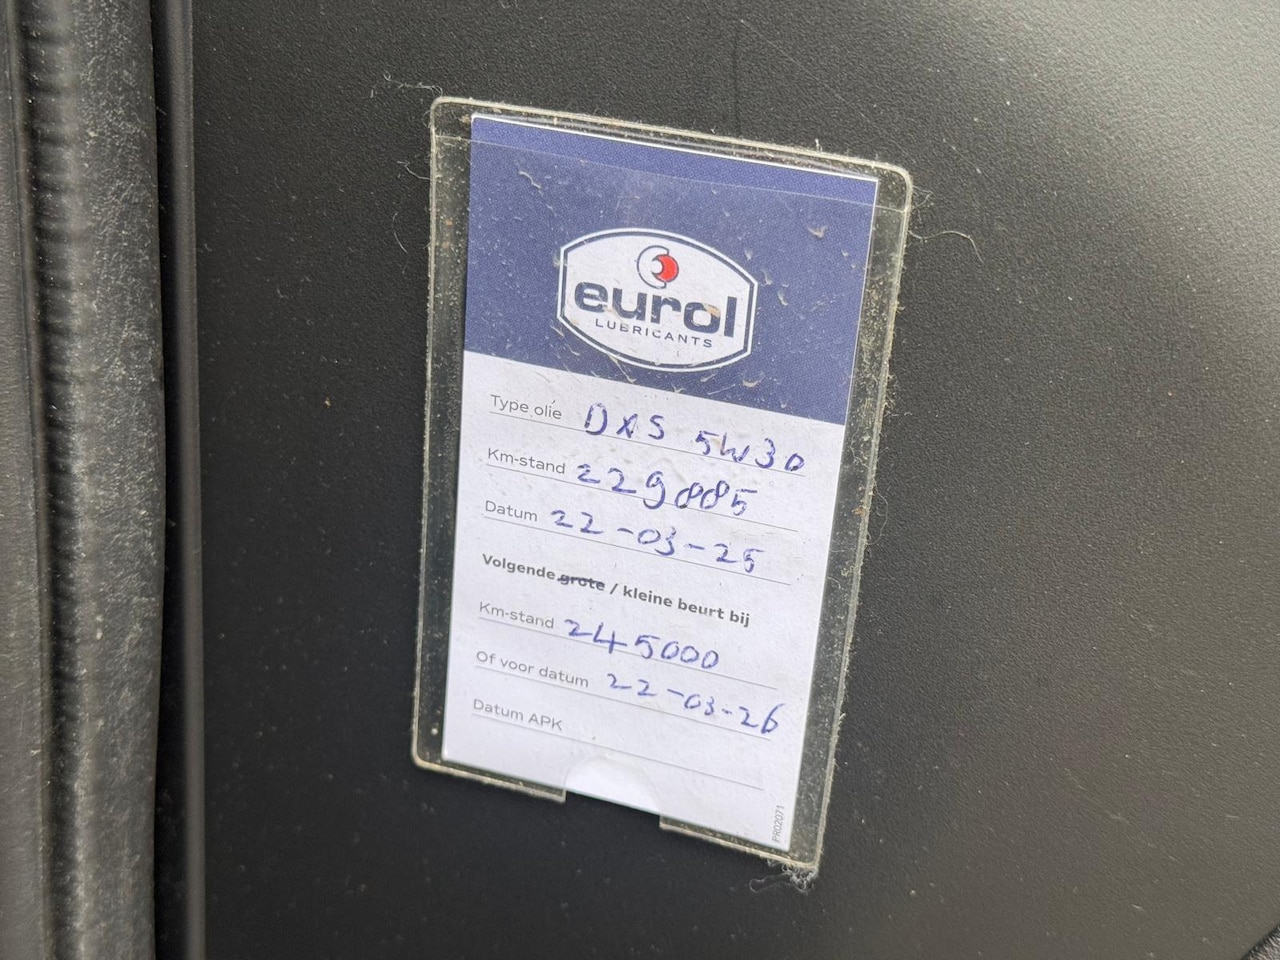 eurol
LUBRICANTS
Type olie DXS 5W30
Km-stand 229885
Datum 22-03-25
Volgende grote / kleine beurt bij
Km-stand 245000
Of voor datum 22-03-26
Datum APK
PR02071